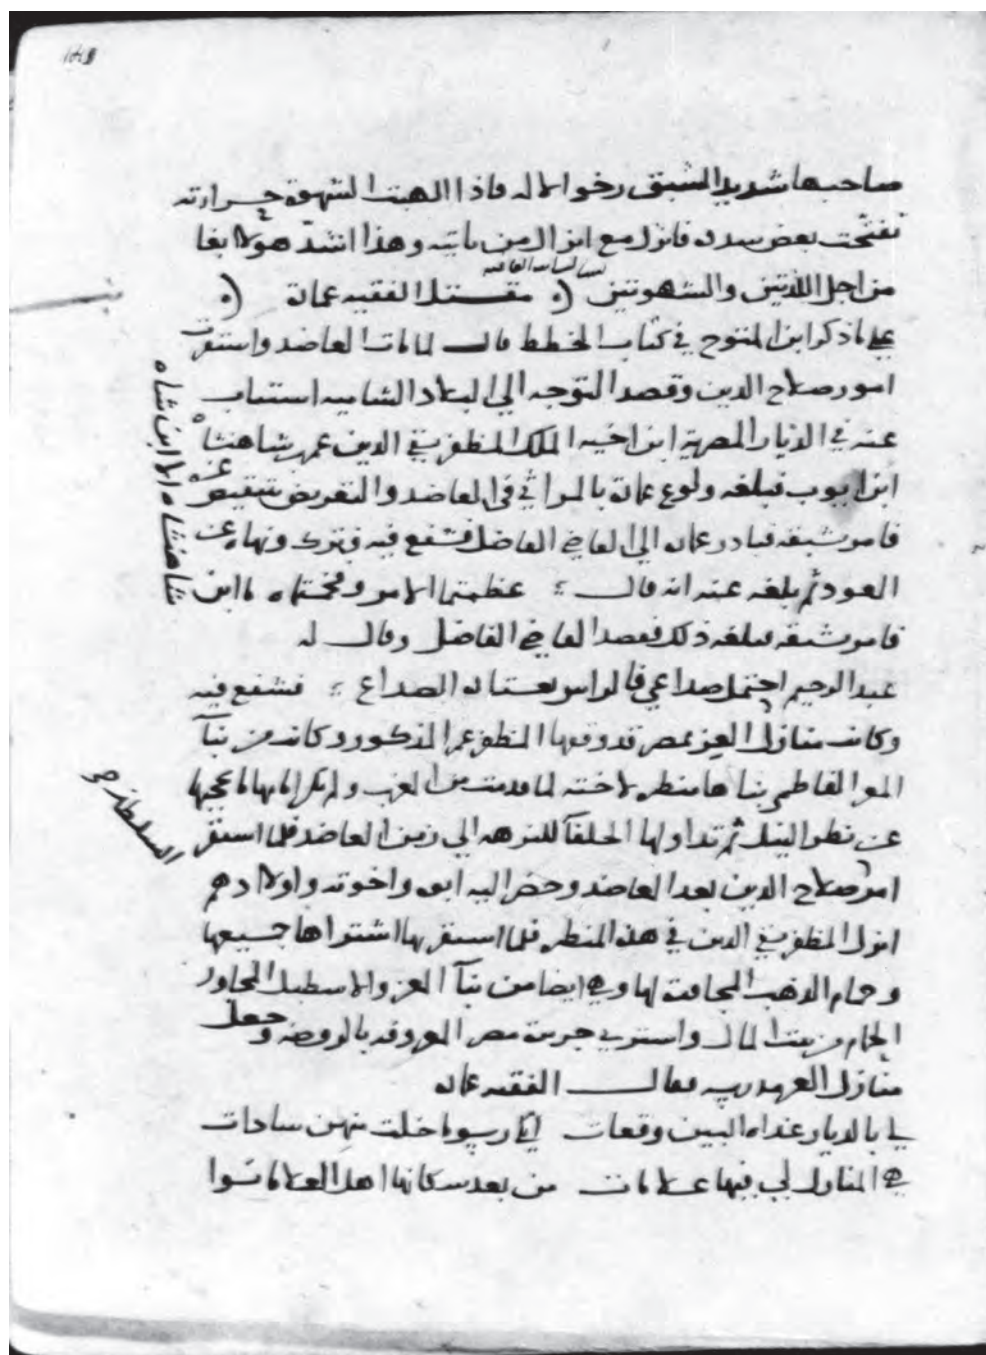 صاحبها شديد الشبق رخو الاله فاذا الهبت الشهوة حرارته
تفتحت بعض سدده فانزل مع انزال من ياتيه وهذا اشد هولا بغا
من اجل اللذتين والشهوتين مقتل الفقيه عمارة
على ما ذكر ابن المتوج في كتاب الخطط قال لما مات العاضد واستقرت
امور صلاح الدين وقصد التوجه الى البلاد الشاميه استناب
عنه في الديار المصرية ابن اخيه الملك المظفر تقي الدين عمر بن شاهنشاه
ابن ايوب فبلغه ولوع عمارة بالمراثي في العاضد والتعريض بتنقيص عزه
فامر بشنقه فبادر عماره الى القاضي الفاضل فشفع فيه فترك ونهاه عن
العود ثم بلغه عنه انه قال عظمتم الامر وفخمتاه ما ابن
شاهنشاه الا ابن شاه
فامر بشنقه فبلغه ذلك فقصد القاضي الفاضل وقال له
عبد الرحيم احتمل صداعي فالراس يعتاده الصداع فشفع فيه
وكانت منازل العز بمصر قد وقفها المظفر عمر المذكور وكانت من بنآ
المعز الفاطمي بناها منظره لاخته لما قدمت من الغرب ولم يكن امامها ما يحجبها
عن نظر النيل ثم تداولها الخلفآ للنزهه الى زمن العاضد فلما استقر
امر صلاح الدين بعد العاضد وحضر اليه ابوه واخوته واولادهم
السلطنة
انزل المظفر تقي الدين في هذه المنظره فلما استقر بها اشتراها جميعها
وحمام الذهب المجاورة لها وهي ايضا من بنآ العز والاسطبل المجاور
الحمام من بيت المال واشترى جزيرة مصر المعروفه بالروضه وجعل
منازل العز مدرسه فقال الفقيه عماره
يا بالديار غداه البين وقعات اذ رسوما خلت منهن سادات
هي المنازل لي فيها علامات من بعد سكانها اهل العلا ماتوا